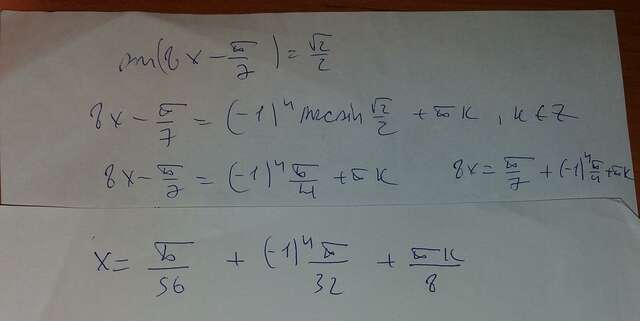 sin(8x - π/7) = √2/2
8x - π/7 = (-1)ⁿ arcsin √2/2 + πк, к ∈ Z
8x - π/7 = (-1)ⁿ π/4 + πк 8x = π/7 + (-1)ⁿ π/4 + πк
x = π/56 + (-1)ⁿ π/32 + πк/8